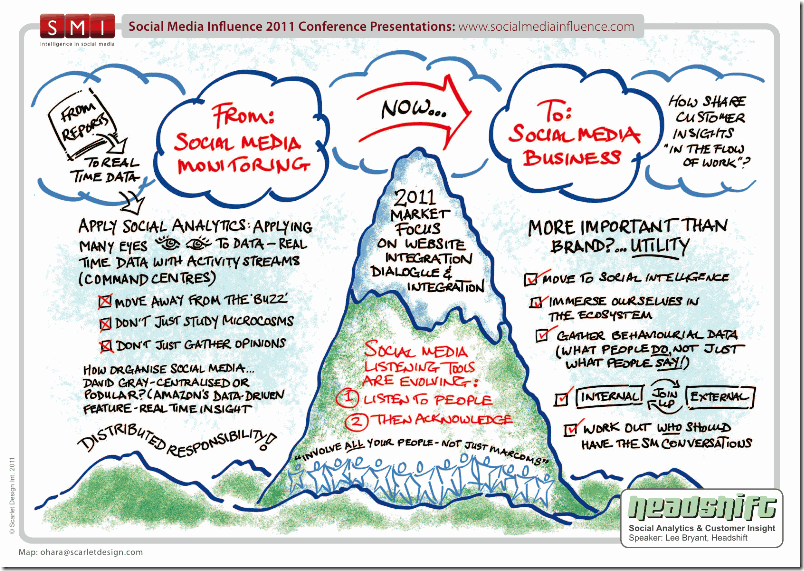 SMI
intelligence in social media
Social Media Influence 2011 Conference Presentations: www.socialmediainfluence.com
FROM
REPORTS
TO REAL
TIME DATA
FROM:
SOCIAL MEDIA
MONITORING
NOW...
TO:
SOCIAL MEDIA
BUSINESS
HOW SHARE
CUSTOMER
INSIGHTS
"IN THE FLOW
OF WORK"?
APPLY SOCIAL ANALYTICS: APPLYING
MANY EYES TO DATA - REAL
TIME DATA WITH ACTIVITY STREAMS
(COMMAND CENTRES)
MOVE AWAY FROM THE 'BUZZ'
DON'T JUST STUDY MICROCOSMS
DON'T JUST GATHER OPINIONS
HOW ORGANISE SOCIAL MEDIA...
DAVID GRAY - CENTRALISED OR
POPULAR? (AMAZON'S DATA-DRIVEN
FEATURE - REAL TIME INSIGHT
DISTRIBUTED RESPONSIBILITY!
2011
MARKET
FOCUS
ON WEBSITE
INTEGRATION
DIALOGUE &
INTEGRATION
SOCIAL MEDIA
LISTENING TOOLS
ARE EVOLVING:
1 LISTEN TO PEOPLE
2 THEN ACKNOWLEDGE
"INVOLVE ALL YOUR PEOPLE - NOT JUST MARCOMS"
MORE IMPORTANT THAN
BRAND?... UTILITY
MOVE TO SOCIAL INTELLIGENCE
IMMERSE OURSELVES IN
THE ECOSYSTEM
GATHER BEHAVIOURIAL DATA
(WHAT PEOPLE DO, NOT JUST
WHAT PEOPLE SAY!)
INTERNAL JOIN UP EXTERNAL
WORK OUT WHO SHOULD
HAVE THE SM CONVERSATIONS
headshift
Social Analytics & Customer Insight
Speaker: Lee Bryant, Headshift
© Scarlet Design Int. 2011
Map: ohara@scarletdesign.com